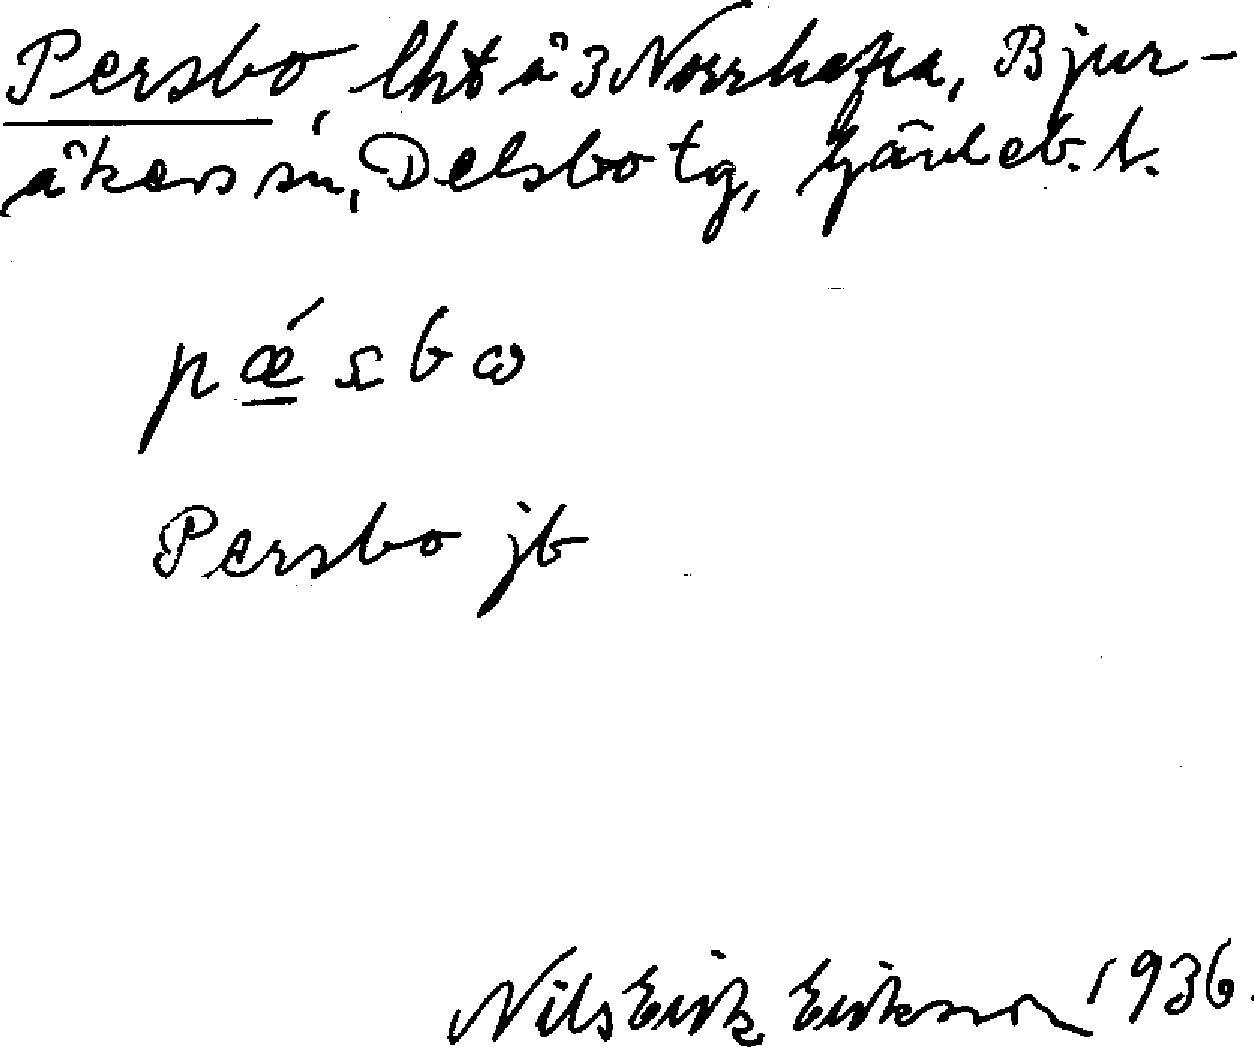 Persbo, lht å 3 Norrhafra, Bjur-
åkers sn, Delsbo tg, Gävleb. l.
pǽsbω
Persbo jb
Nils Erik Eriksson 1936.